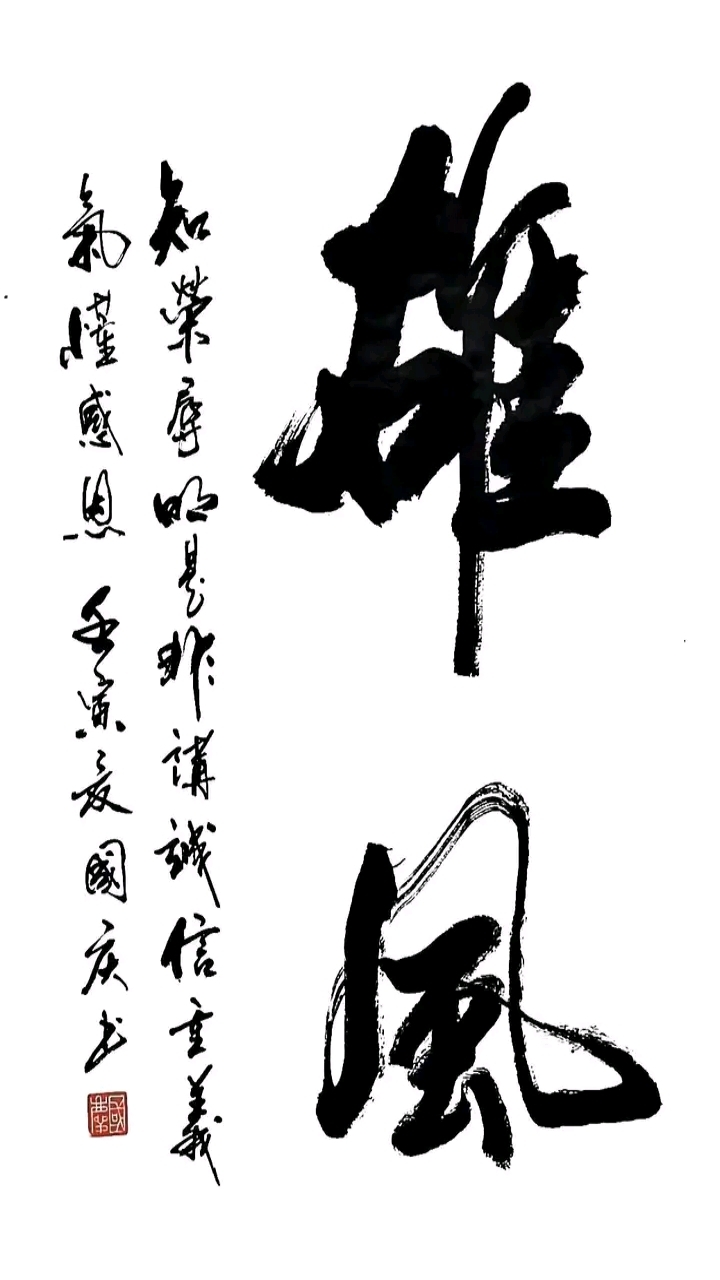 雄風
知榮辱明是非講誠信重義
氣懂感恩 壬寅夏國庆书
國慶